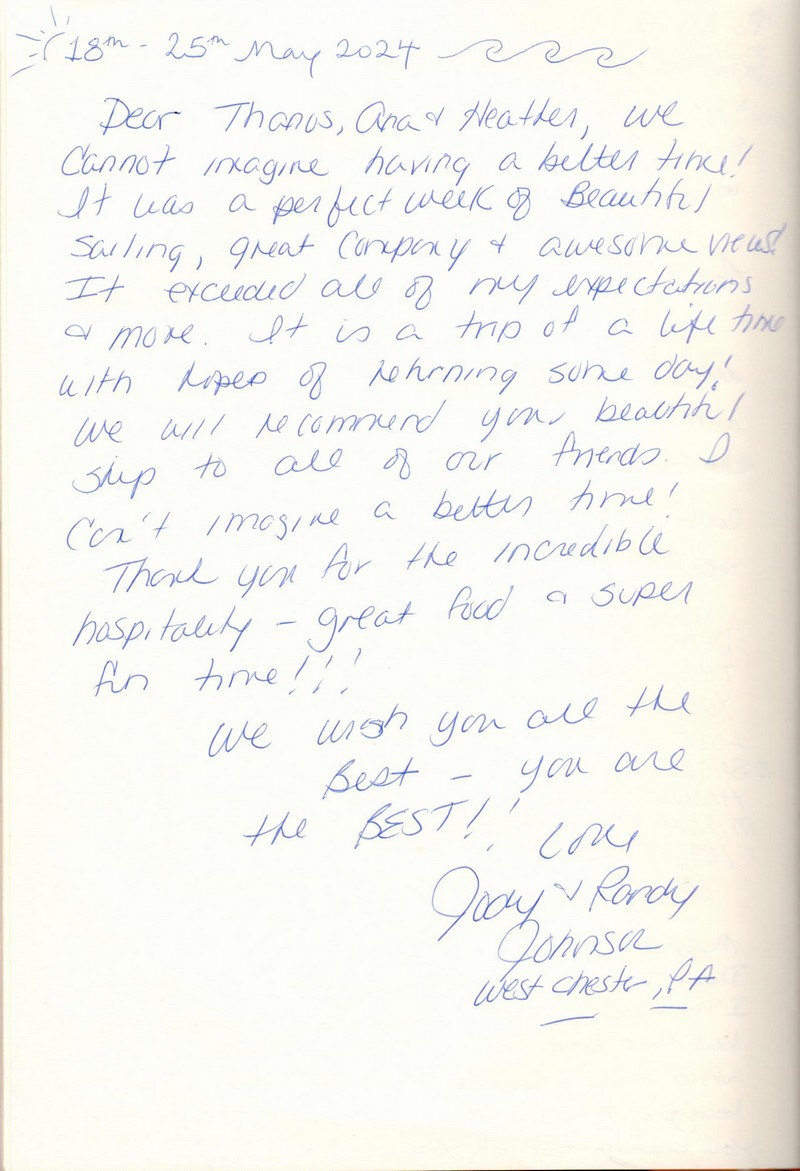 18th - 25th May 2024
Dear Thanos, Ana & Heather, we
Cannot imagine having a better time!
It was a perfect week of Beautiful
Sailing, great Company & awesome views!
It exceeded all of my expectations
& more. It is a trip of a life time
with hopes of returning some day!
We will recommend your beautiful
ship to all of our friends. I
Can't imagine a better time!
Thank you for the incredible
hospitality - great food & super
fun time!!!
We wish you all the
Best - you are
the BEST!!
Love
Jody & Randy
Johnson
West Chester, PA